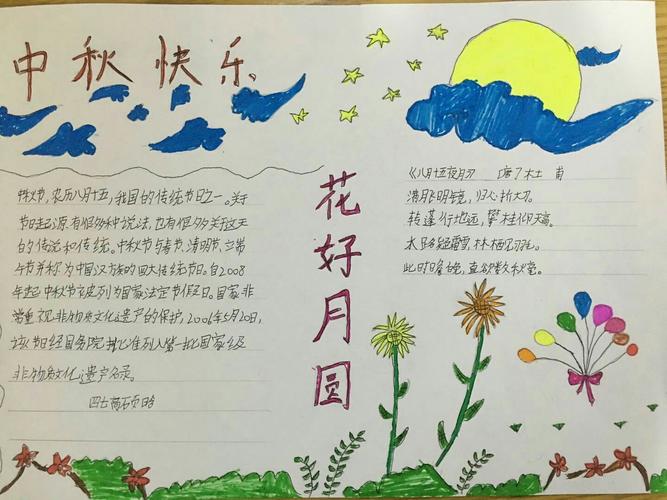 中秋快乐
中秋节,农历八月十五,我国的传统节日之一。关于
节日起源有很多种说法,也有很多关于这天
的传说和传统。中秋节与春节、清明节、端
午节并称为中国汉族的四大传统节日。自2008
年起中秋节被列为国家法定节假日。国家非
常重视非物质文化遗产的保护,2006年5月20日,
该节日经国务院批准列入第一批国家级
非物质文化遗产名录。
花好月圆
《八月十五夜月》 唐 杜 甫
满月飞明镜,归心折大刀。
转蓬行地远,攀桂仰天高。
水路疑霜雪,林栖见羽毛。
此时瞻白兔,直欲数秋毫。